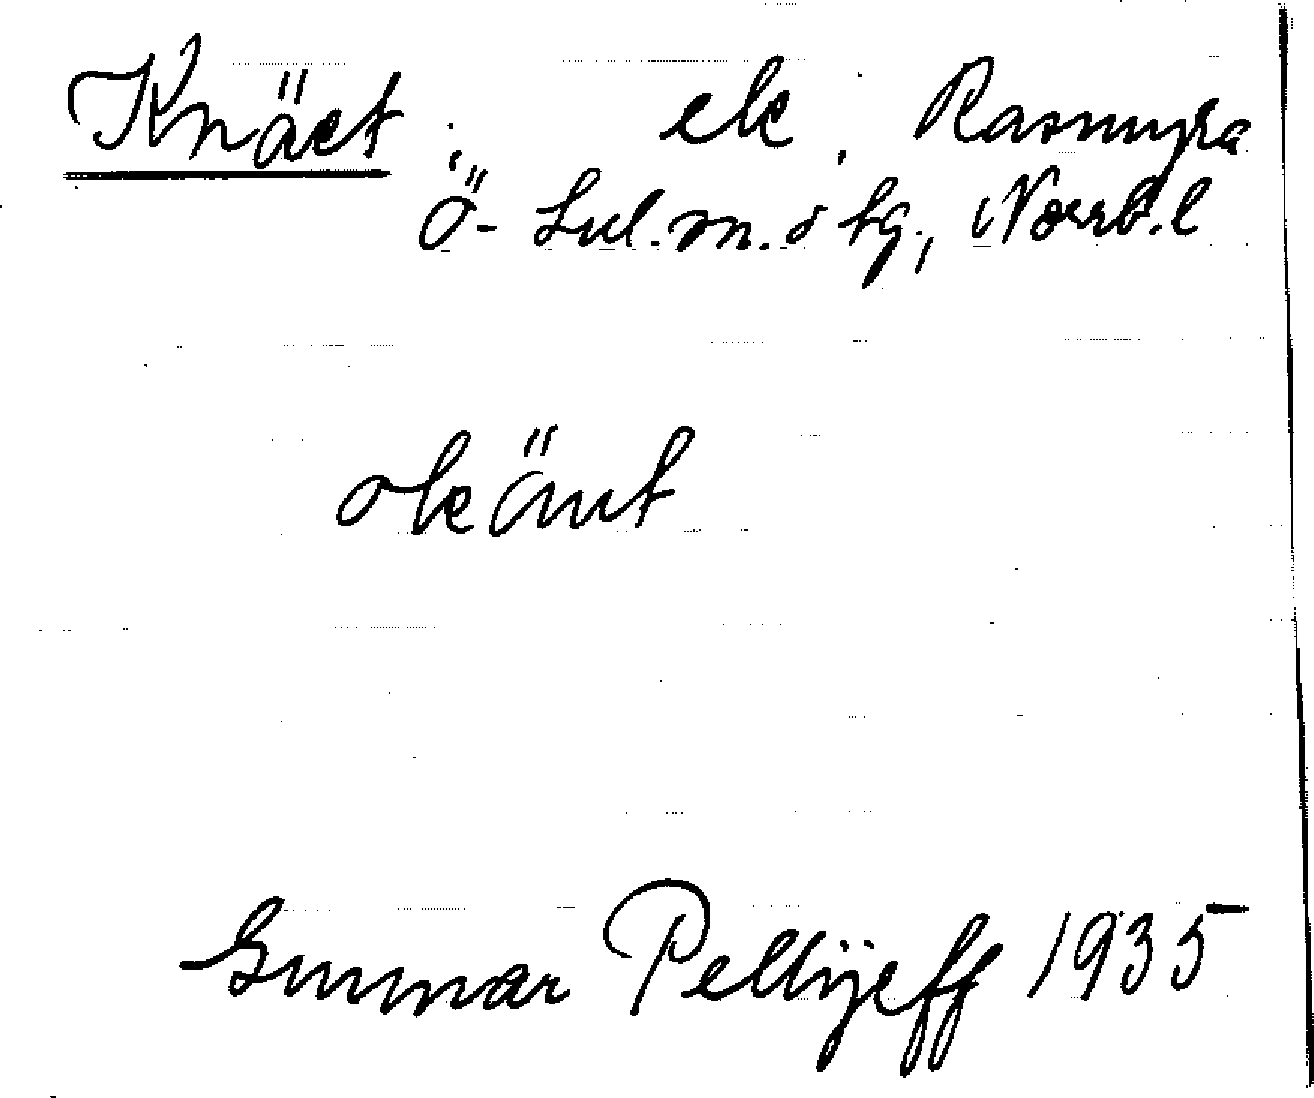 Knäet : ek . Rasmyra
Ö-Lul. m. o tg., Norrb. l
okänt
Gunnar Pellijeff 1935